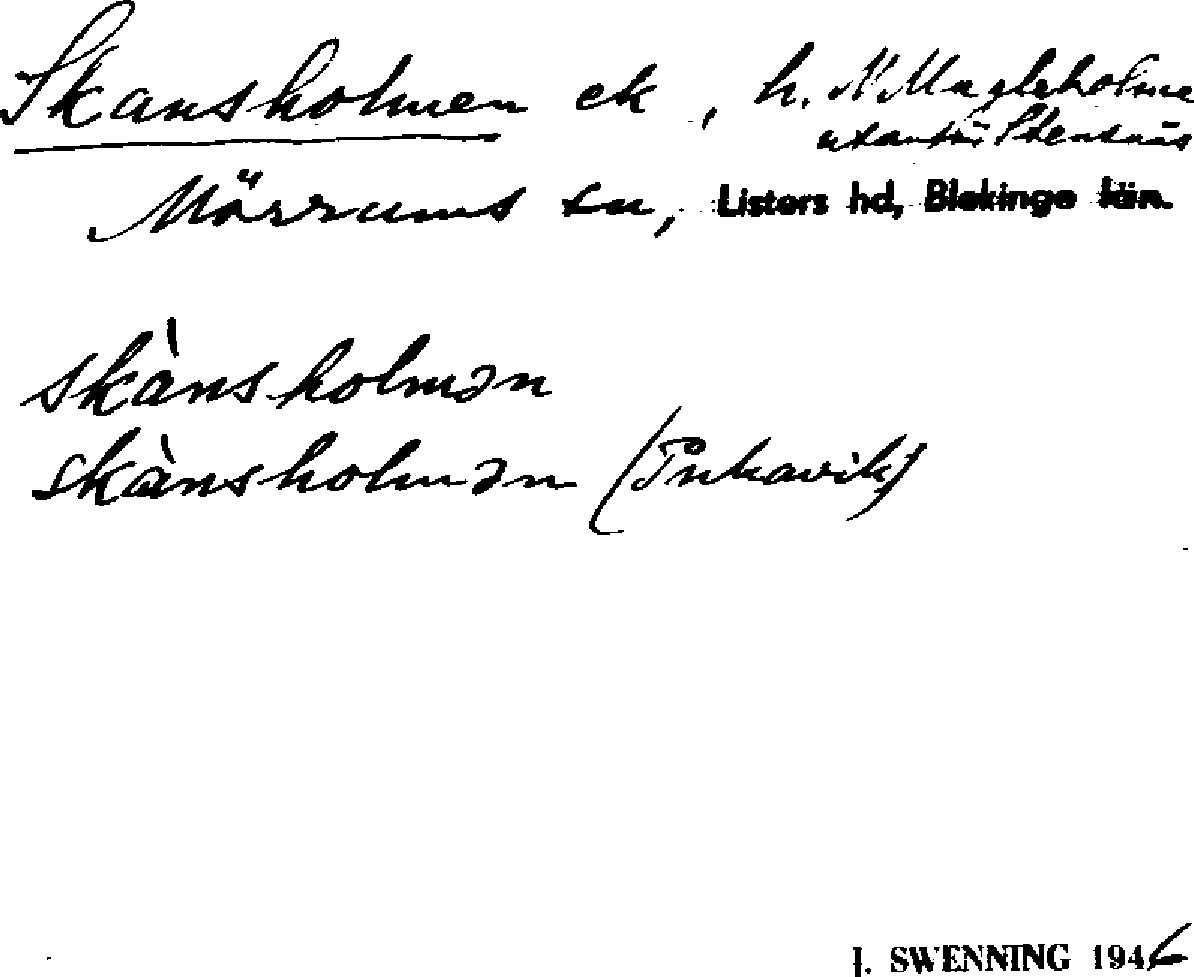 Skansholmen ek, h. N Magleholme
utanför Stensnäs
Mörrums sn, Listers hd, Blekinge län.
skànsholmən
skànsholmən (Pukavik)
J. SWENNING 1946